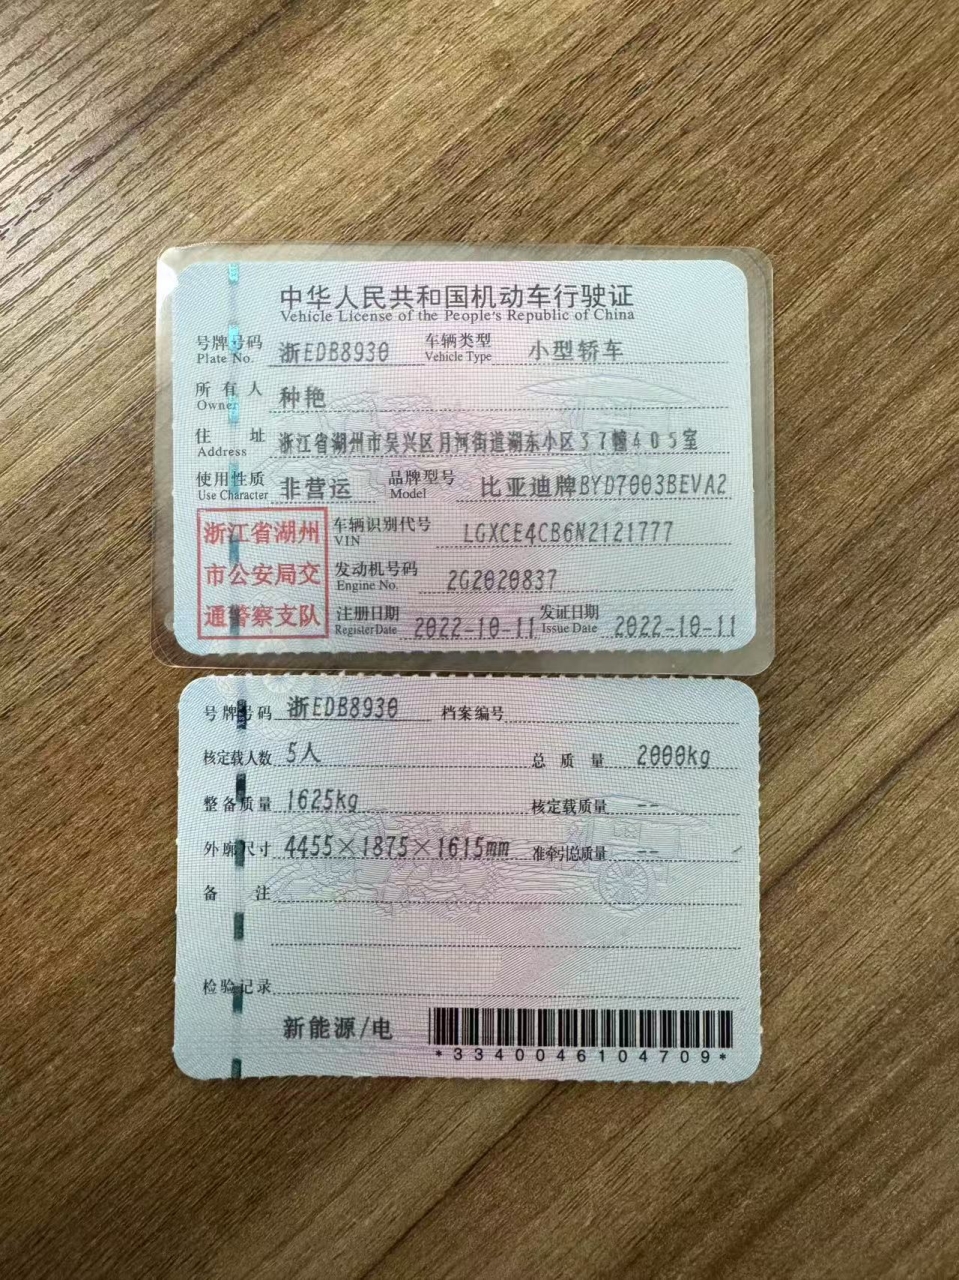 中华人民共和国机动车行驶证
Vehicle License of the People's Republic of China
号牌号码 浙EDB8930 车辆类型 小型轿车
Plate No. Vehicle Type
所有人 种艳
Owner
住址 浙江省湖州市吴兴区月河街道湖东小区37幢405室
Address
使用性质 非营运 品牌型号 比亚迪牌BYD7003BEVA2
Use Character Model
浙江省湖州
市公安局交
通警察支队
车辆识别代号 LGXCE4CB6N2121777
VIN
发动机号码 2G2020837
Engine No.
注册日期 2022-10-11 发证日期 2022-10-11
Register Date Issue Date
号牌号码 浙EDB8930 档案编号
核定载人数 5人 总质量 2000kg
整备质量 1625kg 核定载质量 --
外廓尺寸 4455×1875×1615mm 准牵引总质量 --
备注
检验记录
新能源/电
*3340046104709*